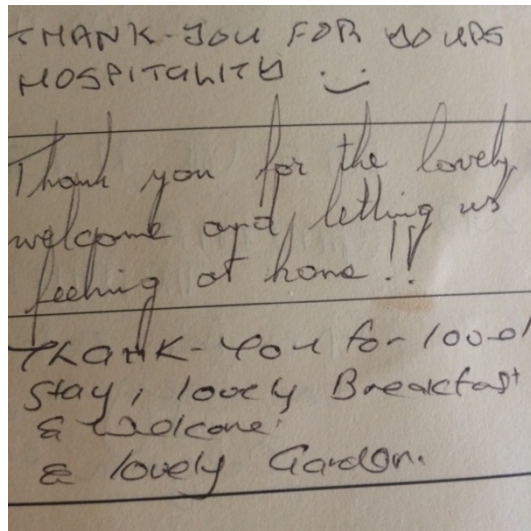 THANK-YOU FOR YOURS
HOSPITALITY :)
Thank you for the lovely
welcome and letting us
feeling at home !!
THANK-YOU for
Stay, lovely Breakfast
& Welcome
& lovely Garden.